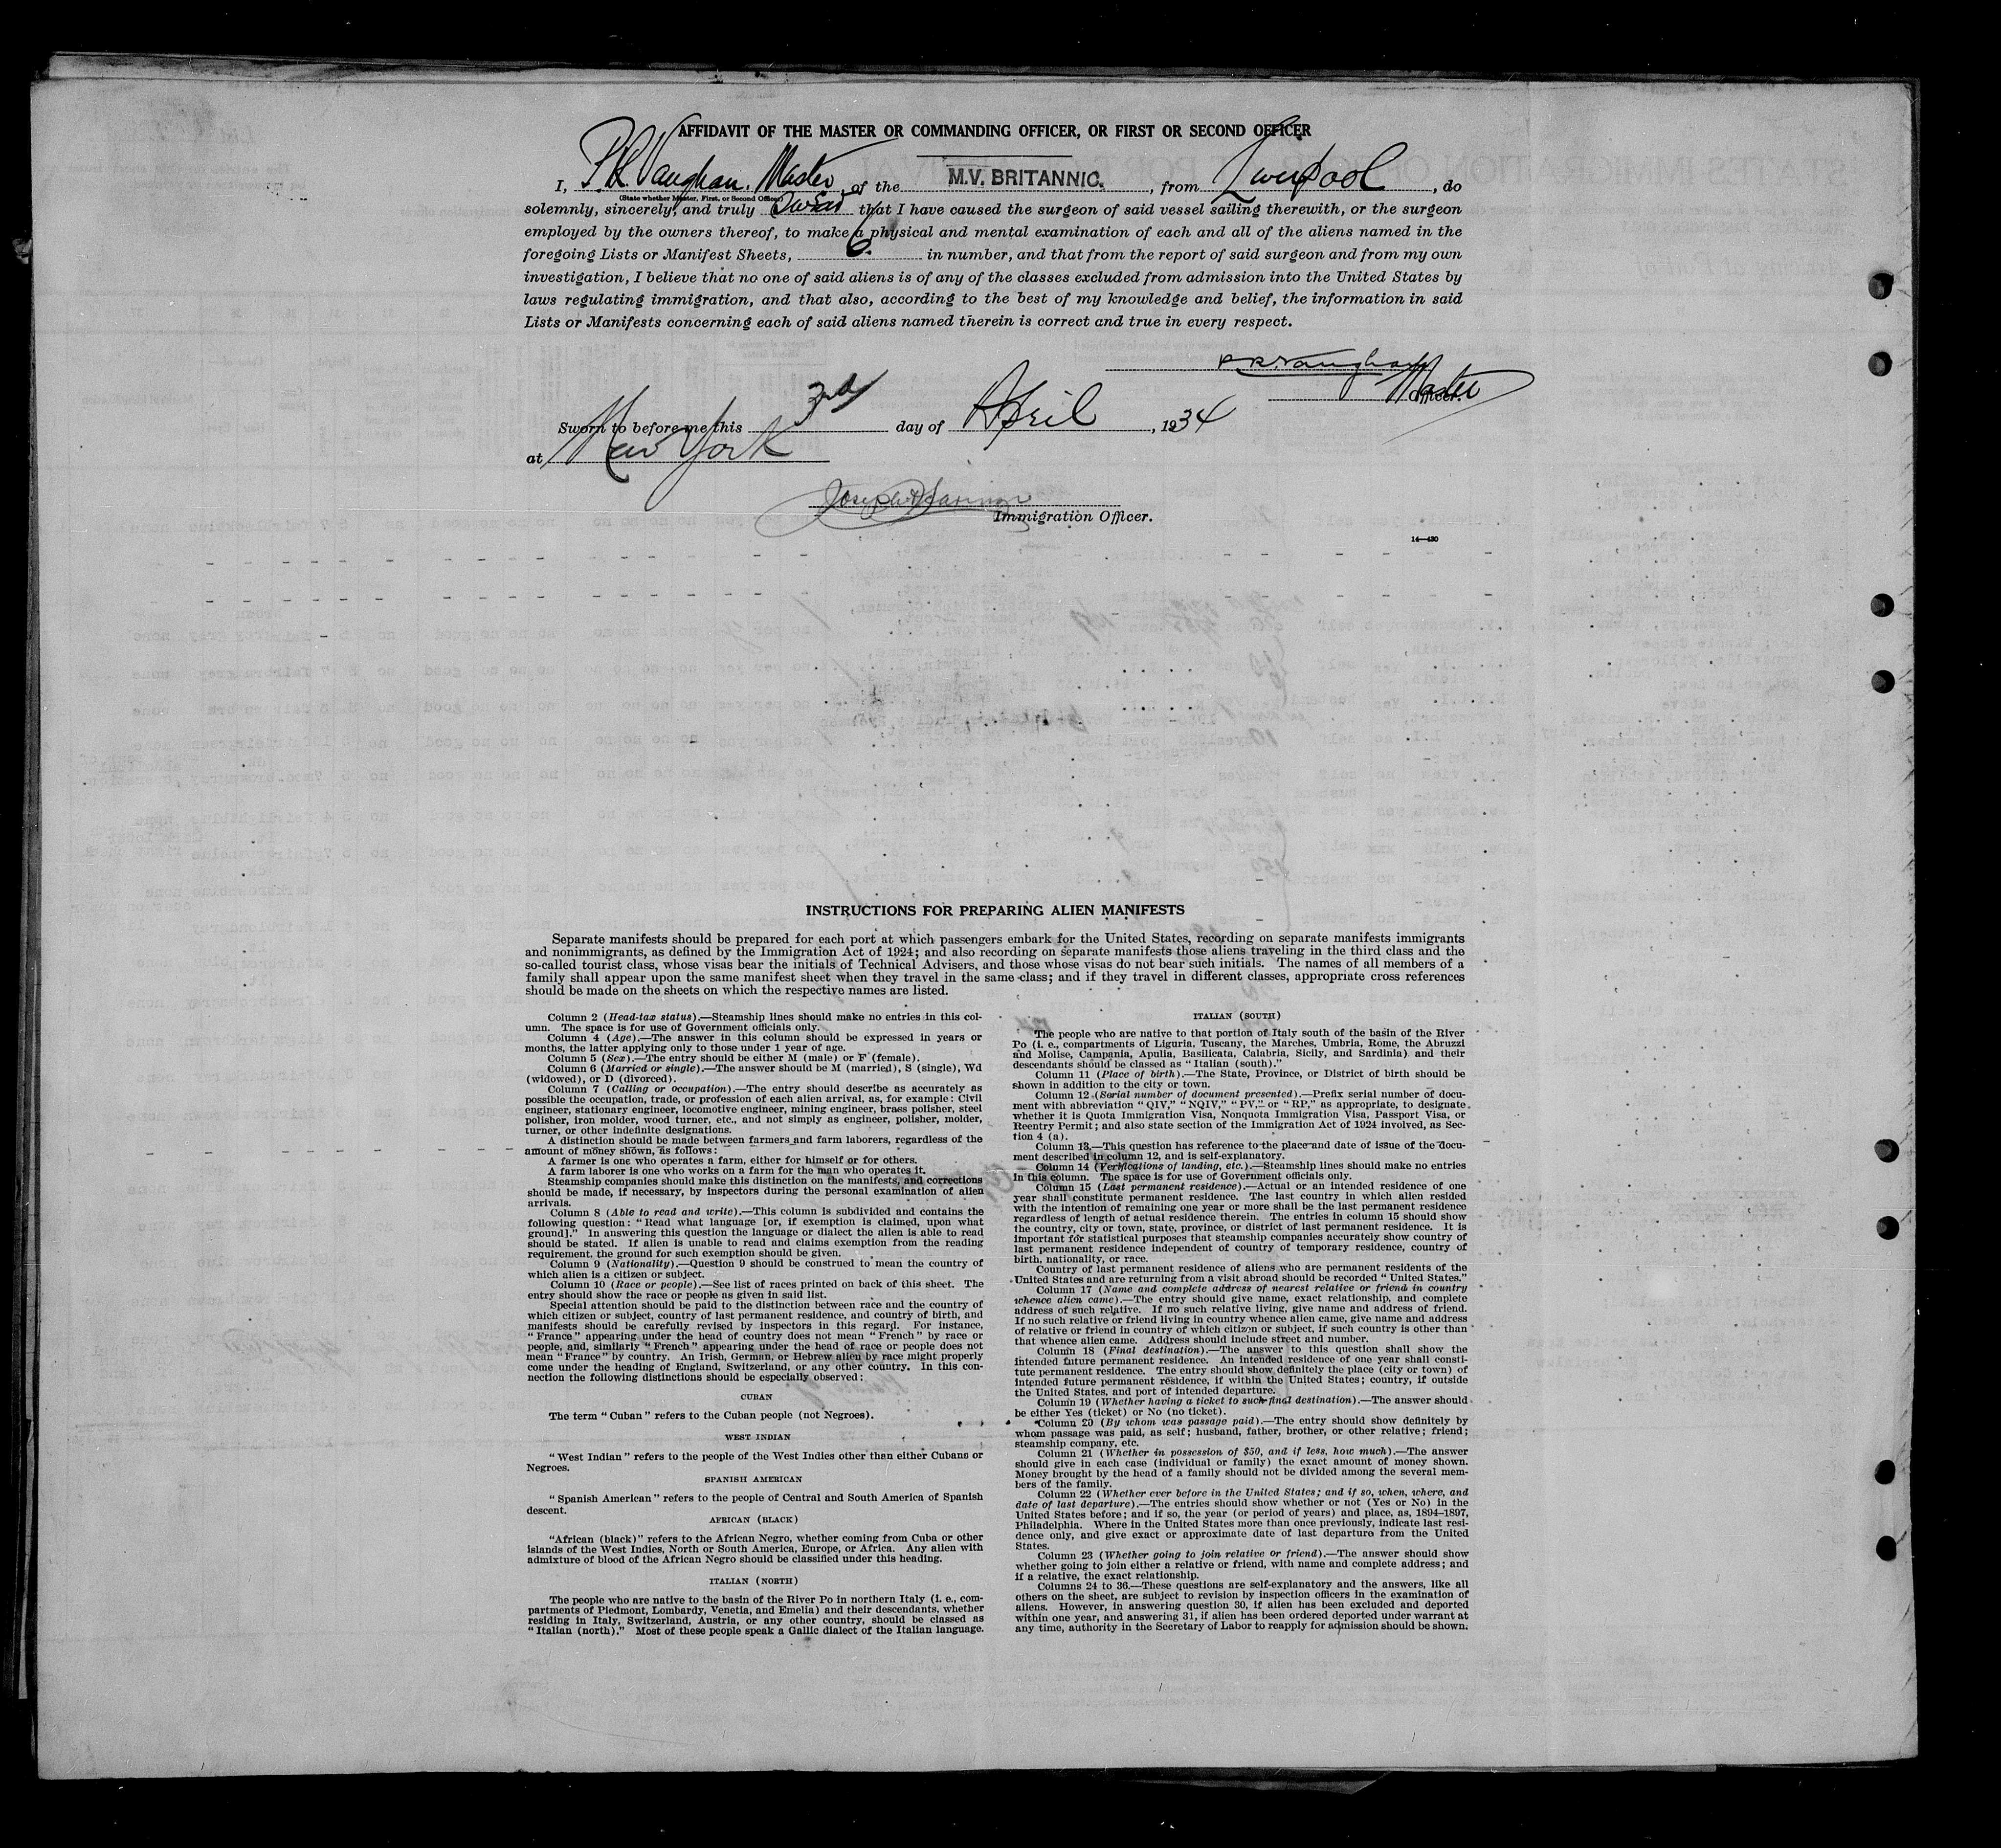 AFFIDAVIT OF THE MASTER OR COMMANDING OFFICER, OR FIRST OR SECOND OFFICER
I, P.R. Vaughan. Master of the M.V. BRITANNIC. , from Liverpool , do
(State whether Master, First, or Second Officer)
solemnly, sincerely, and truly swear that I have caused the surgeon of said vessel sailing therewith, or the surgeon
employed by the owners thereof, to make a physical and mental examination of each and all of the aliens named in the
foregoing Lists or Manifest Sheets, 6. in number, and that from the report of said surgeon and from my own
investigation, I believe that no one of said aliens is of any of the classes excluded from admission into the United States by
laws regulating immigration, and that also, according to the best of my knowledge and belief, the information in said
Lists or Manifests concerning each of said aliens named therein is correct and true in every respect.
P.R. Vaughan
Master
Officer.
Sworn to before me this 3rd day of April , 1934
at New York
Immigration Officer.
14—430
INSTRUCTIONS FOR PREPARING ALIEN MANIFESTS
Separate manifests should be prepared for each port at which passengers embark for the United States, recording on separate manifests immigrants
and nonimmigrants, as defined by the Immigration Act of 1924; and also recording on separate manifests those aliens traveling in the third class and the
so-called tourist class, whose visas bear the initials of Technical Advisers, and those whose visas do not bear such initials. The names of all members of a
family shall appear upon the same manifest sheet when they travel in the same class; and if they travel in different classes, appropriate cross references
should be made on the sheets on which the respective names are listed.
Column 2 (Head-tax status).—Steamship lines should make no entries in this col-
umn. The space is for use of Government officials only.
Column 4 (Age).—The answer in this column should be expressed in years or
months, the latter applying only to those under 1 year of age.
Column 5 (Sex).—The entry should be either M (male) or F (female).
Column 6 (Married or single).—The answer should be M (married), S (single), Wd
(widowed), or D (divorced).
Column 7 (Calling or occupation).—The entry should describe as accurately as
possible the occupation, trade, or profession of each alien arrival, as, for example: Civil
engineer, stationary engineer, locomotive engineer, mining engineer, brass polisher, steel
polisher, iron molder, wood turner, etc., and not simply as engineer, polisher, molder,
turner, or other indefinite designations.
A distinction should be made between farmers and farm laborers, regardless of the
amount of money shown, as follows:
A farmer is one who operates a farm, either for himself or for others.
A farm laborer is one who works on a farm for the man who operates it.
Steamship companies should make this distinction on the manifests, and corrections
should be made, if necessary, by inspectors during the personal examination of alien
arrivals.
Column 8 (Able to read and write).—This column is subdivided and contains the
following question: "Read what language [or, if exemption is claimed, upon what
ground]." In answering this question the language or dialect the alien is able to read
should be stated. If alien is unable to read and claims exemption from the reading
requirement, the ground for such exemption should be given.
Column 9 (Nationality).—Question 9 should be construed to mean the country of
which alien is a citizen or subject.
Column 10 (Race or people).—See list of races printed on back of this sheet. The
entry should show the race or people as given in said list.
Special attention should be paid to the distinction between race and the country of
which citizen or subject, country of last permanent residence, and country of birth, and
manifests should be carefully revised by inspectors in this regard. For instance,
"France" appearing under the head of country does not mean "French" by race or
people, and, similarly "French" appearing under the head of race or people does not
mean "France" by country. An Irish, German, or Hebrew alien by race might properly
come under the heading of England, Switzerland, or any other country. In this con-
nection the following distinctions should be especially observed:
CUBAN
The term "Cuban" refers to the Cuban people (not Negroes).
WEST INDIAN
"West Indian" refers to the people of the West Indies other than either Cubans or
Negroes.
SPANISH AMERICAN
"Spanish American" refers to the people of Central and South America of Spanish
descent.
AFRICAN (BLACK)
"African (black)" refers to the African Negro, whether coming from Cuba or other
islands of the West Indies, North or South America, Europe, or Africa. Any alien with
admixture of blood of the African Negro should be classified under this heading.
ITALIAN (NORTH)
The people who are native to the basin of the River Po in northern Italy (i. e., com-
partments of Piedmont, Lombardy, Venetia, and Emelia) and their descendants, whether
residing in Italy, Switzerland, Austria, or any other country, should be classed as
"Italian (north)." Most of these people speak a Gallic dialect of the Italian language.
ITALIAN (SOUTH)
The people who are native to that portion of Italy south of the basin of the River
Po (i. e., compartments of Liguria, Tuscany, the Marches, Umbria, Rome, the Abruzzi
and Molise, Campania, Apulia, Basilicata, Calabria, Sicily, and Sardinia) and their
descendants should be classed as "Italian (south)."
Column 11 (Place of birth).—The State, Province, or District of birth should be
shown in addition to the city or town.
Column 12 (Serial number of document presented).—Prefix serial number of docu-
ment with abbreviation "QIV," "NQIV," "PV," or "RP," as appropriate, to designate
whether it is Quota Immigration Visa, Nonquota Immigration Visa, Passport Visa, or
Reentry Permit; and also state section of the Immigration Act of 1924 involved, as Sec-
tion 4 (a).
Column 13.—This question has reference to the place and date of issue of the docu-
ment described in column 12, and is self-explanatory.
Column 14 (Verifications of landing, etc.).—Steamship lines should make no entries
in this column. The space is for use of Government officials only.
Column 15 (Last permanent residence).—Actual or an intended residence of one
year shall constitute permanent residence. The last country in which alien resided
with the intention of remaining one year or more shall be the last permanent residence
regardless of length of actual residence therein. The entries in column 15 should show
the country, city or town, state, province, or district of last permanent residence. It is
important for statistical purposes that steamship companies accurately show country of
last permanent residence independent of country of temporary residence, country of
birth, nationality, or race.
Country of last permanent residence of aliens who are permanent residents of the
United States and are returning from a visit abroad should be recorded "United States."
Column 17 (Name and complete address of nearest relative or friend in country
whence alien came).—The entry should give name, exact relationship, and complete
address of such relative. If no such relative living, give name and address of friend.
If no such relative or friend living in country whence alien came, give name and address
of relative or friend in country of which citizen or subject, if such country is other than
that whence alien came. Address should include street and number.
Column 18 (Final destination).—The answer to this question shall show the
intended future permanent residence. An intended residence of one year shall consti-
tute permanent residence. The entry should show definitely the place (city or town) of
intended future permanent residence, if within the United States; country, if outside
the United States, and port of intended departure.
Column 19 (Whether having a ticket to such final destination).—The answer should
be either Yes (ticket) or No (no ticket).
Column 20 (By whom was passage paid).—The entry should show definitely by
whom passage was paid, as self; husband, father, brother, or other relative; friend;
steamship company, etc.
Column 21 (Whether in possession of $50, and if less, how much).—The answer
should give in each case (individual or family) the exact amount of money shown.
Money brought by the head of a family should not be divided among the several mem-
bers of the family.
Column 22 (Whether ever before in the United States; and if so, when, where, and
date of last departure).—The entries should show whether or not (Yes or No) in the
United States before; and if so, the year (or period of years) and place, as, 1894–1897,
Philadelphia. Where in the United States more than once previously, indicate last resi-
dence only, and give exact or approximate date of last departure from the United
States.
Column 23 (Whether going to join relative or friend).—The answer should show
whether going to join either a relative or friend, with name and complete address; and
if a relative, the exact relationship.
Columns 24 to 36.—These questions are self-explanatory and the answers, like all
others on the sheet, are subject to revision by inspection officers in the examination of
aliens. However, in answering question 30, if alien has been excluded and deported
within one year, and answering 31, if alien has been ordered deported under warrant at
any time, authority in the Secretary of Labor to reapply for admission should be shown.